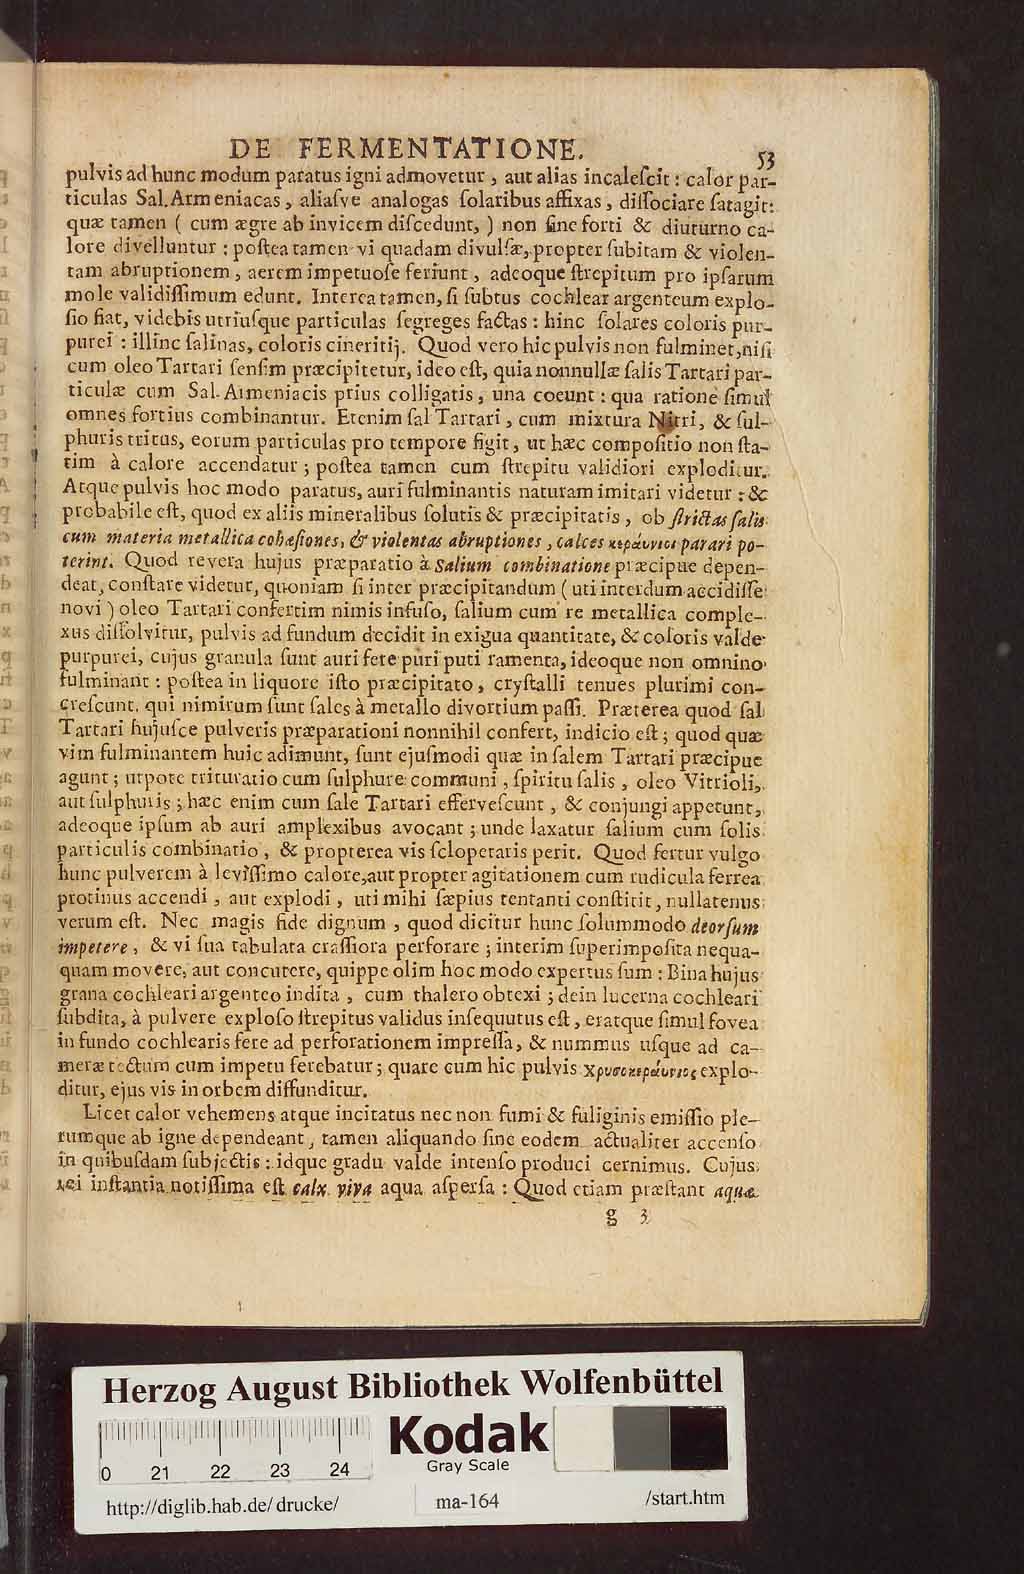 DE FERMENTATIONE. 53
pulvis ad hunc modum paratus igni admovetur, aut alias incaleſcit: calor par-
ticulas Sal. Armeniacas, aliaſve analogas ſolaribus affixas, diſſociare ſatagit:
quæ tamen ( cum ægre ab invicem diſcedunt, ) non ſine forti & diuturno ca-
lore divelluntur : poſtea tamen vi quadam divulſæ, propter ſubitam & violen-
tam abruptionem, aerem impetuoſe feriunt, adeoque ſtrepitum pro ipſarum
mole validiſſimum edunt. Interea tamen, ſi ſubtus cochlear argenteum explo-
ſio fiat, videbis utriuſque particulas ſegreges factas : hinc ſolares coloris pur-
purei : illinc ſalinas, coloris cineritij. Quod vero hic pulvis non fulminet, niſi
cum oleo Tartari ſenſim præcipitetur, ideo eſt, quia nonnullæ ſalis Tartari par-
ticulæ cum Sal. Armeniacis prius colligatis, una coeunt : qua ratione ſimul
omnes fortius combinantur. Etenim ſal Tartari, cum mixtura Nitri, & ſul-
phuris tritus, eorum particulas pro tempore figit, ut hæc compoſitio non ſta-
tim à calore accendatur ; poſtea tamen cum ſtrepitu validiori exploditur.
Atque pulvis hoc modo paratus, auri fulminantis naturam imitari videtur : &
probabile eſt, quod ex aliis mineralibus ſolutis & præcipitatis, ob ſtrictas ſalis
cum materia metallica cohæſiones, & violentas abruptiones, calces κεράυνιοι parari po-
terint. Quod revera hujus præparatio à Salium combinatione præcipue depen-
deat, conſtare videtur, quoniam ſi inter præcipitandum ( uti interdum accidiſſe
novi ) oleo Tartari confertim nimis infuſo, ſalium cum re metallica comple-
xus diſſolvitur, pulvis ad fundum decidit in exigua quantitate, & coloris valde
purpurei, cujus granula ſunt auri fere puri puti ramenta, ideoque non omnino
fulminant : poſtea in liquore iſto præcipitato, cryſtalli tenues plurimi con-
creſcunt, qui nimirum ſunt ſales à metallo divortium paſſi. Præterea quod ſal
Tartari hujuſce pulveris præparationi nonnihil confert, indicio eſt ; quod quæ
vim fulminantem huic adimunt, ſunt ejuſmodi quæ in ſalem Tartari præcipue
agunt ; utpote trituratio cum ſulphure communi, ſpiritu ſalis, oleo Vitrioli,
aut ſulphuris ; hæc enim cum ſale Tartari efferveſcunt, & conjungi appetunt,
adeoque ipſum ab auri amplexibus avocant ; unde laxatur ſalium cum ſolis
particulis combinatio, & propterea vis ſclopetaris perit. Quod fertur vulgo
hunc pulverem à leviſſimo calore, aut propter agitationem cum rudicula ferrea
protinus accendi, aut explodi, uti mihi ſæpius tentanti conſtitit, nullatenus
verum eſt. Nec magis fide dignum, quod dicitur hunc ſolummodo deorſum
impetere, & vi ſua tabulata craſſiora perforare ; interim ſuperimpoſita nequa-
quam movere, aut concutere, quippe olim hoc modo expertus ſum : Bina hujus
grana cochleari argenteo indita, cum thalero obtexi ; dein lucerna cochleari
ſubdita, à pulvere exploſo ſtrepitus validus inſequutus eſt, eratque ſimul fovea
in fundo cochlearis fere ad perforationem impreſſa, & nummus uſque ad ca-
meræ tectum cum impetu ferebatur ; quare cum hic pulvis χρυσοκεράυνιος explo-
ditur, ejus vis in orbem diffunditur.
Licet calor vehemens atque incitatus nec non fumi & fuliginis emiſſio ple-
rumque ab igne dependeant, tamen aliquando ſine eodem actualiter accenſo
in quibuſdam ſubjectis : idque gradu valde intenſo produci cernimus. Cujus
rei inſtantia notiſſima eſt calx viva aqua aſperſa : Quod etiam præſtant aquæ
g 3
Herzog August Bibliothek Wolfenbüttel
Kodak
Gray Scale
0 21 22 23 24
http://diglib.hab.de/drucke/ ma-164 /start.htm